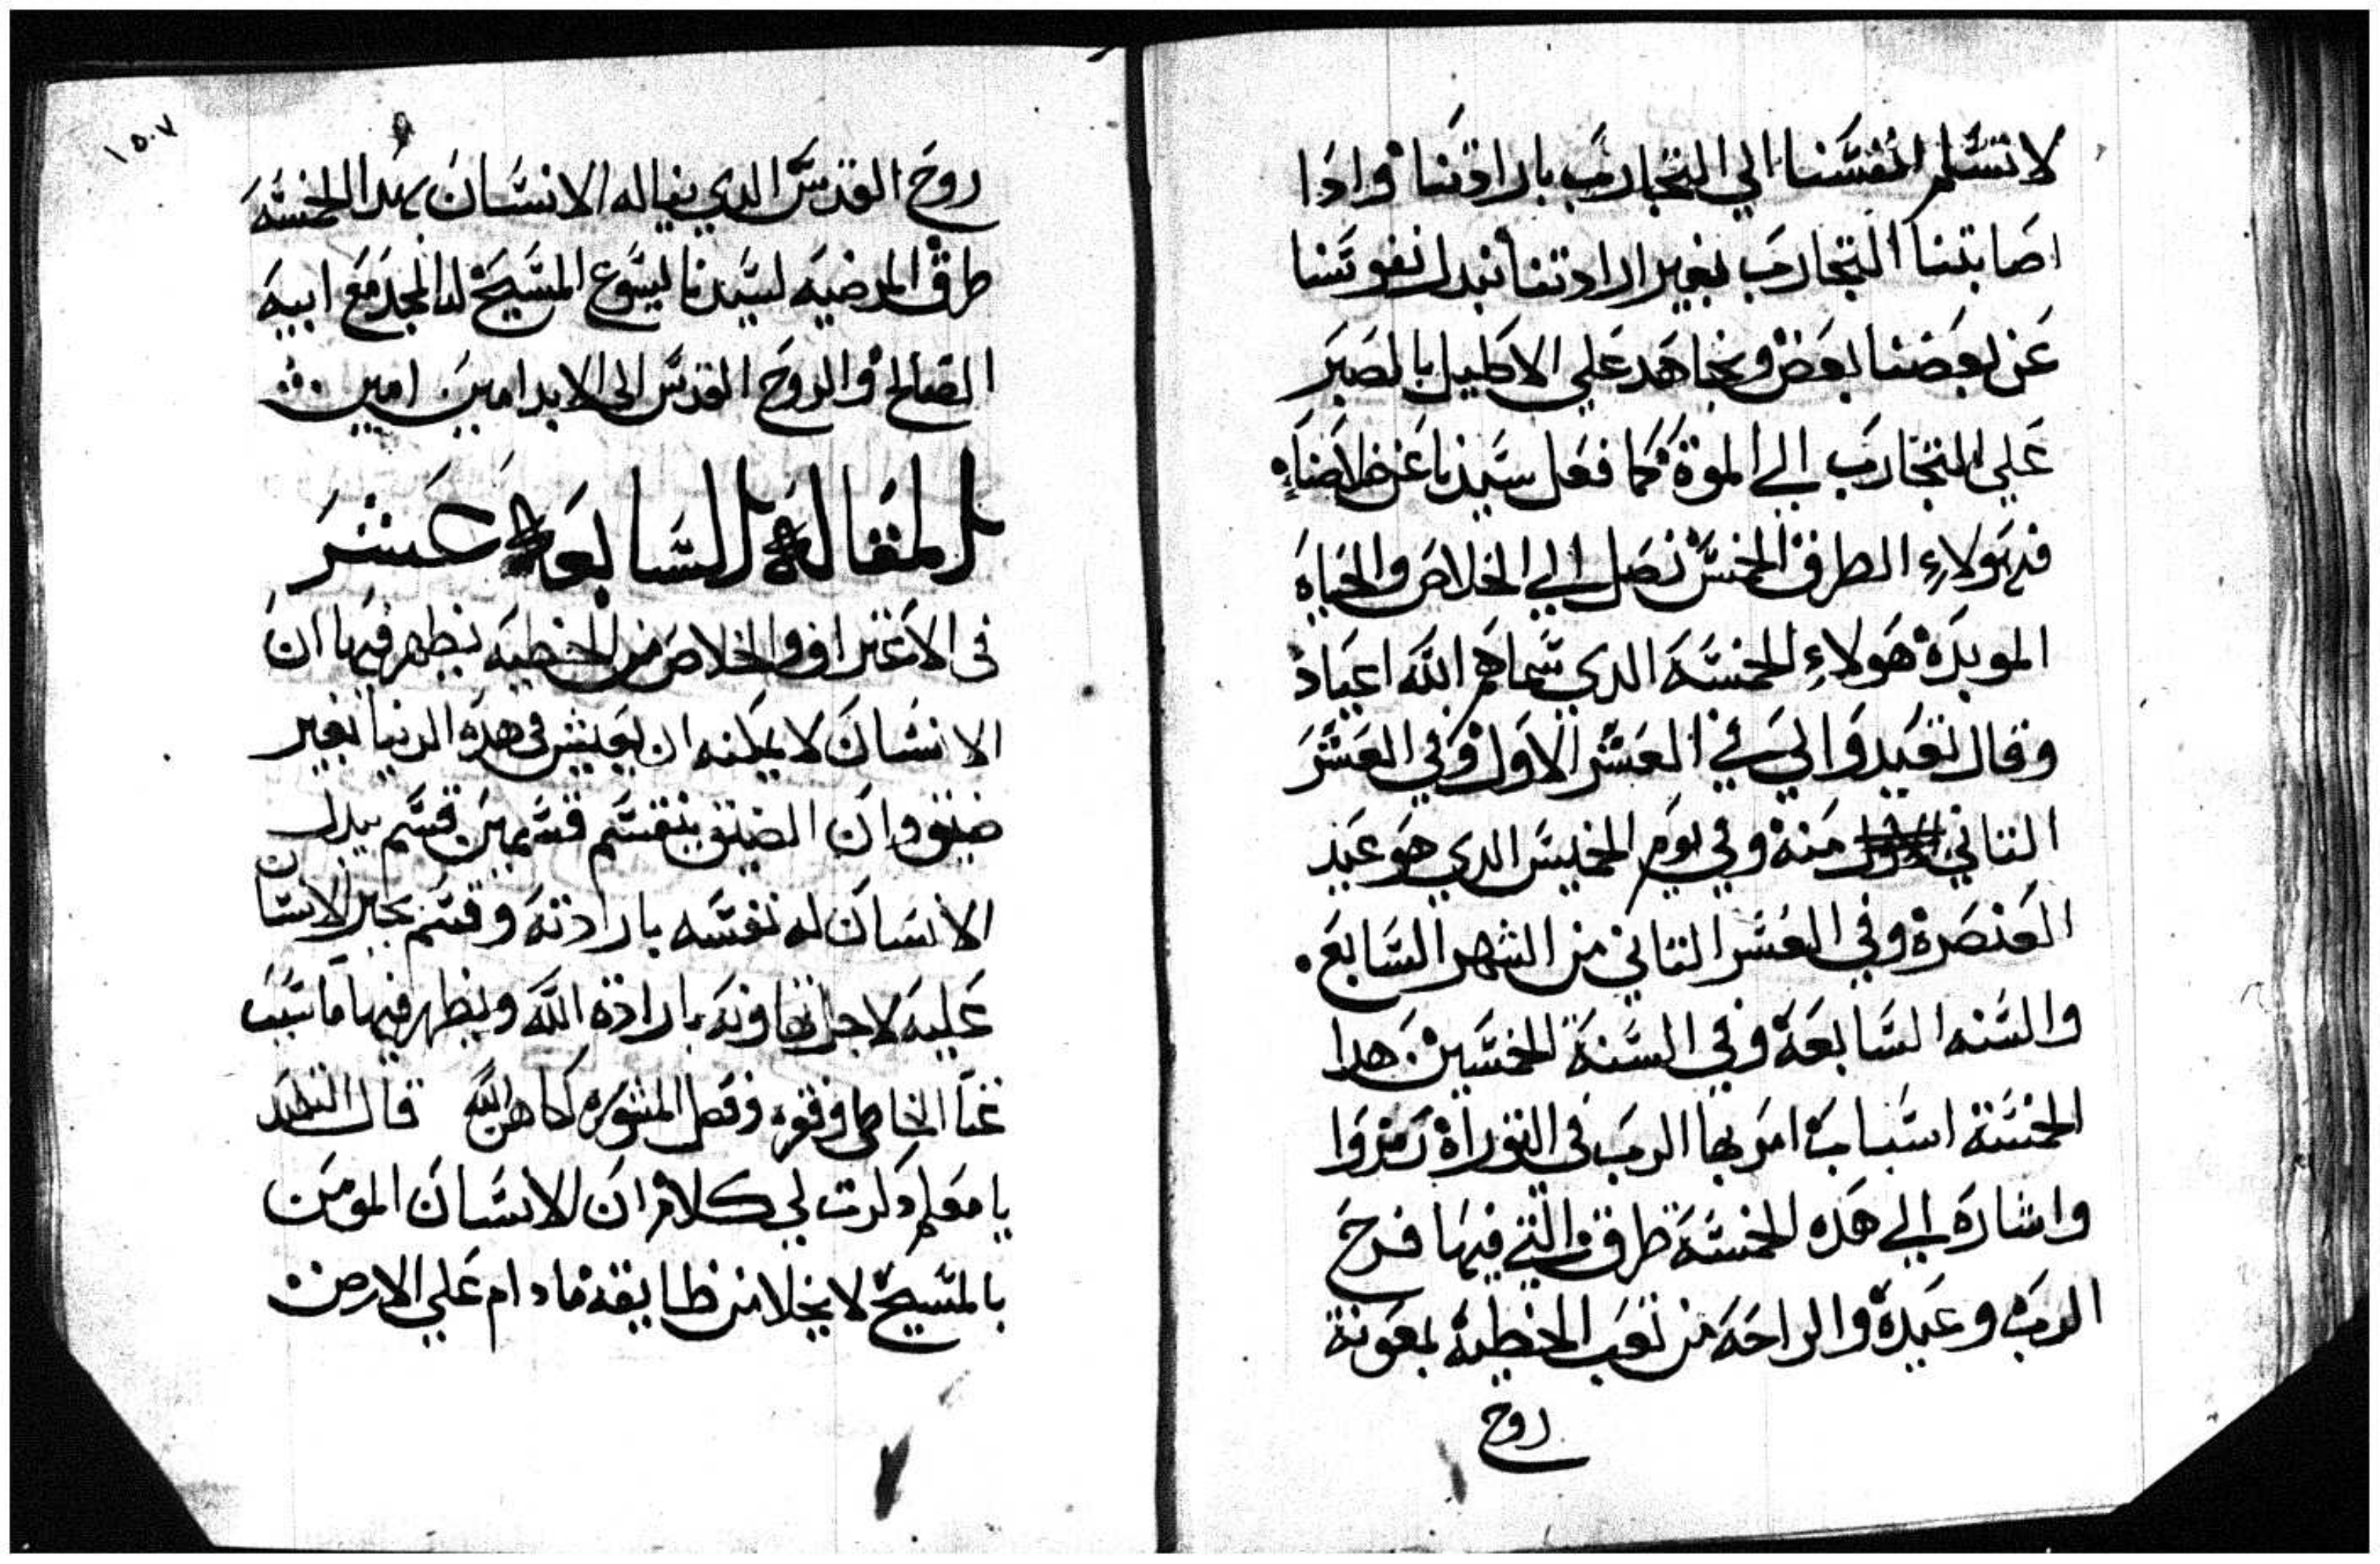 لا نسلم انفسنا الي التجارب بارادتنا واذا
اصابتنا التجارب بغير ارادتنا نبدل نفوسنا
عن بعضنا بعض ونجاهد علي الاكليل بالصبر
علي التجارب الي الموت كما فعل سيدنا عن خلاصنا
فبهولاء الطرق الخمس نصل الي الخلاص والحياة
الموبدة هولاء الخمسة الدي سماهم الله اعياد
وقال تعيدوا لي في العشر الاول وفي العشر
التاني منه وفي يوم الخميس الدي هو عيد
العنصرة وفي العشر التاني من الشهر السابع
والسنه السابعة وفي السنة الخمسين هدا
الخمسة اسباب امر بها الرب في التوراة رمزوا
واشارة الي هذه الخمسة طرق والتي فيها فرح
الرب وعيدة والراحة من تعب الخطية بمعونة
روح
١٥٠٧
روح القدس الدي يناله الانسان بهدا الخمسة
طرق المرضية لسيدنا يسوع المسيح له المجد مع ابيه
الصالح والروح القدس الى الابد امين امين
المقالة السابعة عشر
في الاعتراف والخلاص من الخطية نظهر فيها ان
الانسان لا يمكنه ان يعيش في هذه الدنيا بغير
ضيق وان الضيق ينقسم قسمين قسم يبدل
الانسان له نفسه بارادته وقسم يجبر الانسان
عليه لاجل تهاونه بارادة الله ونظهر فيها ما سبب
غنا الخاطي وفقره وفصل المشورة لكاهن الله قال التلميد
يا معلم دكرت لي كلام ان الانسان المومن
بالمسيح لا يخلا من ظايقة ما دام علي الارض